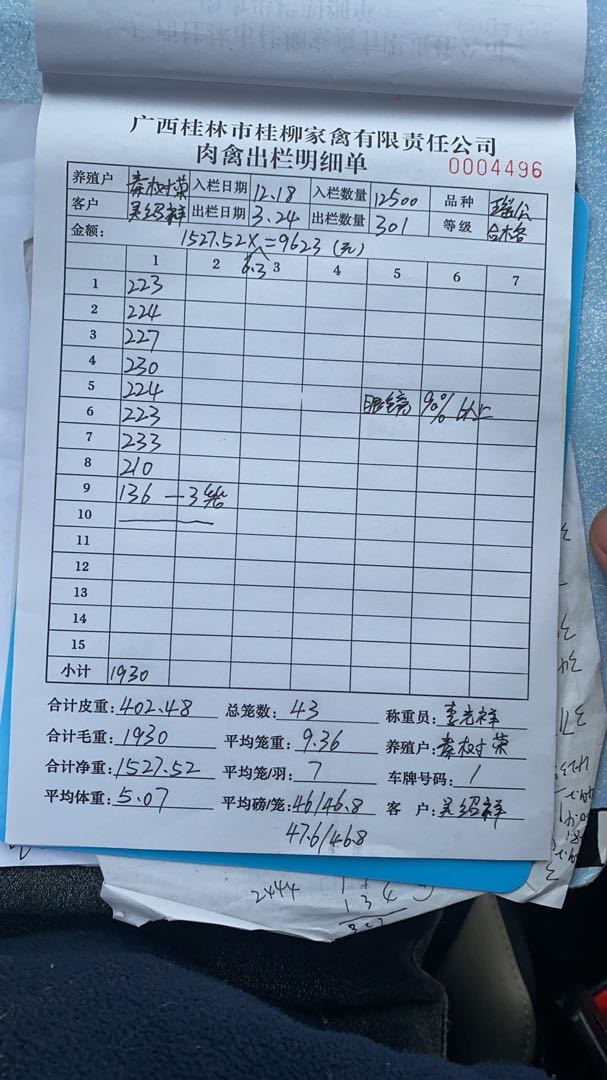 广西桂林市桂柳家禽有限责任公司
肉禽出栏明细单 0004496
养殖户 秦树荣 入栏日期 12.18 入栏数量 12500 品种 瑶公
客户 吴绍祥 出栏日期 3.24 出栏数量 301 等级 合格
金额: 1527.52× =9623 (元)
6.3
1 2 3 4 5 6 7
1 223
2 224
3 227
4 230
5 224 眼镜 90% 以上
6 223
7 233
8 210
9 136 — 3笼
10
11
12
13
14
15
小计 1930
合计皮重: 402.48 总笼数: 43 称重员: 李光祥
合计毛重: 1930 平均笼重: 9.36 养殖户: 秦树荣
合计净重: 1527.52 平均笼/羽: 7 车牌号码: /
平均体重: 5.07 平均磅/笼: 46/46.8 客 户: 吴绍祥
47.6/46.8
2444